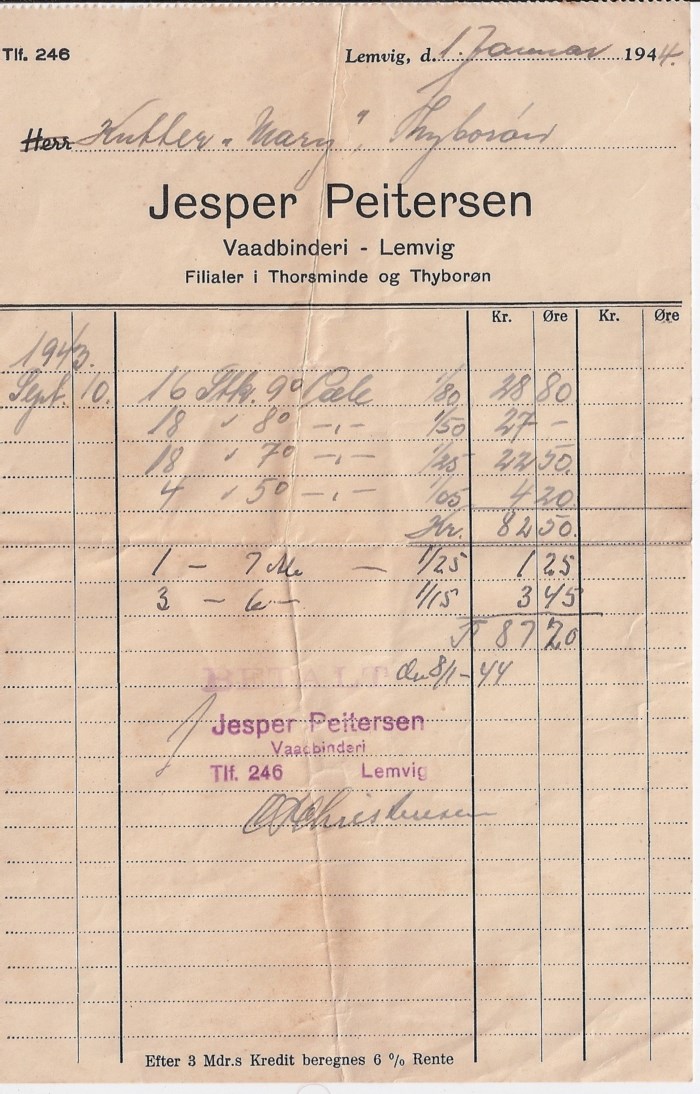 Tlf. 246
Lemvig, d. 1. Januar 1944.
Herr Kutter "Mary", Thyborøn
Jesper Peitersen
Vaadbinderi - Lemvig
Filialer i Thorsminde og Thyborøn
Kr. Øre Kr. Øre
1943.
Sept. 10. 16 Stk. 9° 1/80 28 80
18 " 8° -"- 1/50 27 -
18 " 7° -"- 1/25 22 50
4 " 5° -"- 1/05 4 20
Kr. 82 50
1 - 7 - 1/25 1 25
3 - 6 - 1/15 3 45
87 20
BETALT den 8/1-44
Jesper Peitersen
Vaadbinderi
Tlf. 246 Lemvig
Christensen
Efter 3 Mdr.s Kredit beregnes 6 % Rente